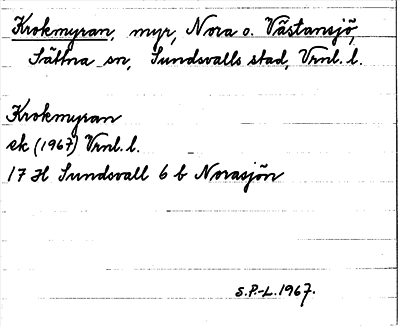 Krokmyran, myr, Nora o. Västansjö,
Sättna sn, Sundsvalls stad, Vrnl. l.
Krokmyran
ek (1967) Vrnl. l.
17 H Sundsvall 6 b Norasjön
S.P.-L. 1967.